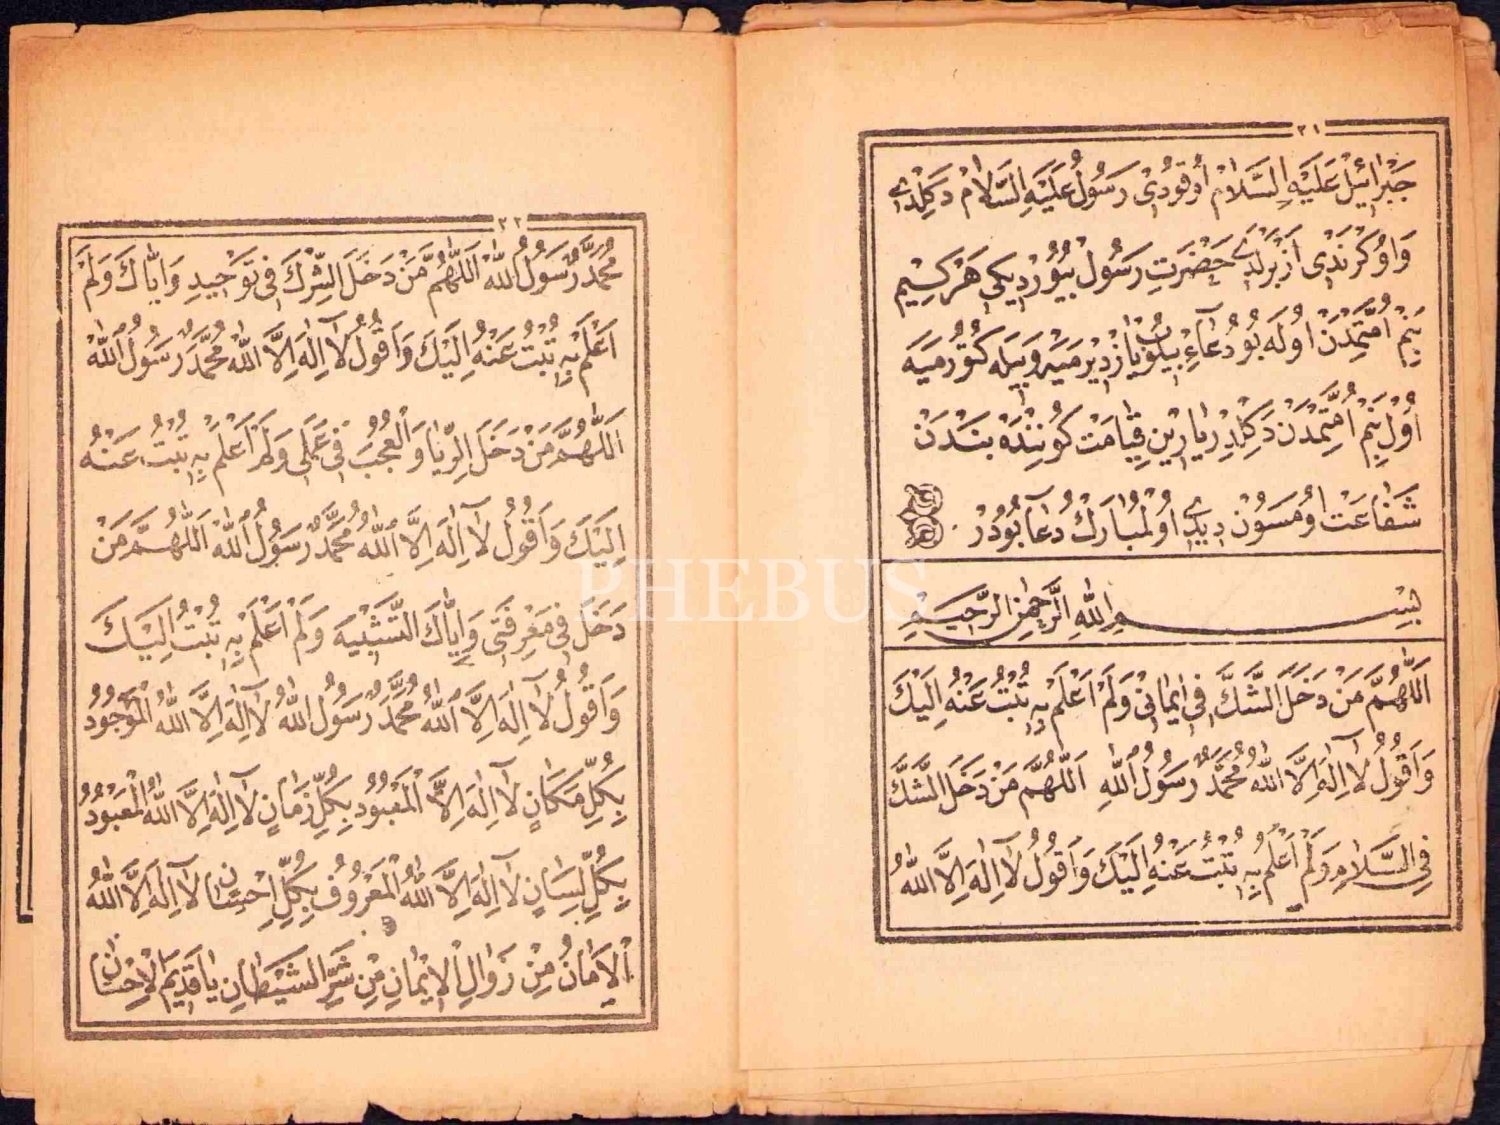 ٢١
جَبْرَائِيلْ عَلَيْهِ السَّلَامْ اُوقُودُىْ رَسُولُ عَلَيْهِ السَّلَامْ دَكِلْدِى
وَاُوكْرَنْدِى اَزْبَرْلَدِى حَضْرَتِ رَسُولْ بُيُورْدِيكِى هَرْكِيمْ
بَنِمْ اُمَّتِمْدَنْ اُولَه بُو دُعَاءِ بِيلُوبْ يَازْدِيرْمَيَه وَبِيلَه كُتُورْمَيَه
اُولْ بَنِمْ اُمَّتِمْدَنْ دَكِلْدِرْ يَارِينْ قِيَامَتْ كُونِنْدَه بَنْدَنْ
شَفَاعَتْ اُومَسُونْ دِيدِى اُولْ مُبَارَكْ دُعَا بُودُرْ
بِسْمِ اللهِ الرَّحْمٰنِ الرَّحِيمِ
اَللّٰهُمَّ مَنْ دَخَلَ الشَّكَّ فِى اِيمَانِىْ وَلَمْ اَعْلَمْ بِهِ تُبْتُ عَنْهُ اِلَيْكَ
وَاَقُولُ لَا اِلٰهَ اِلَّا اللهُ مُحَمَّدٌ رَسُولُ اللهِ اَللّٰهُمَّ مَنْ دَخَلَ الشَّكَّ
فِى السَّلَامِ وَلَمْ اَعْلَمُ بِهِ تُبْتُ عَنْهُ اِلَيْكَ وَاَقُولُ لَا اِلٰهَ اِلَّا اللهُ
٢٢
مُحَمَّدٌ رَسُولُ اللهْ اَللّٰهُمَّ مَنْ دَخَلَ الشِّرْكَ فِى تَوْحِيدِ وَاِيَّاكَ وَلَمْ
اَعْلَمْ بِهِ تُبْتُ عَنْهُ اِلَيْكَ وَاَقُولُ لَا اِلٰهَ اِلَّا اللهُ مُحَمَّدٌ رَسُولُ اللهْ
اَللّٰهُمَّ مَنْ دَخَلَ الرِّيَا وَالْعُجُبَ فِى عَمَلِى وَلَمْ اَعْلَمْ بِهِ تُبْتُ عَنْهُ
اِلَيْكَ وَاَقُولُ لَا اِلٰهَ اِلَّا اللهُ مُحَمَّدٌ رَسُولُ اللهْ اَللّٰهُمَّ مَنْ
دَخَلَ فِى مَعْرِفَتِى وَاِيَّاكَ التَّشْبِيهَ وَلَمْ اَعْلَمْ بِهِ تُبْتُ اِلَيْكَ
وَاَقُولُ لَا اِلٰهَ اِلَّا اللهُ مُحَمَّدٌ رَسُولُ اللهُ لَا اِلٰهَ اِلَّا اللهُ الْمَوْجُودُ
بِكُلِّ مَكَانٍ لَا اِلٰهَ اِلَّا الْمَعْبُودُ بِكُلِّ زَمَانٍ لَا اِلٰهَ اِلَّا اللهُ الْمَعْبُودُ
بِكُلِّ لِسَانٍ لَا اِلٰهَ اِلَّا اللهُ الْمَعْرُوفُ بِكُلِّ اِحْسَانٍ لَا اِلٰهَ اِلَّا اللهُ
اَلْاَمَانُ مِنْ زَوَالِ الْاِيْمَانِ مِنْ شَرِّ الشَّيْطَانِ يَا قَدِيمَ الْاِحْسَانِ
PHEBUS